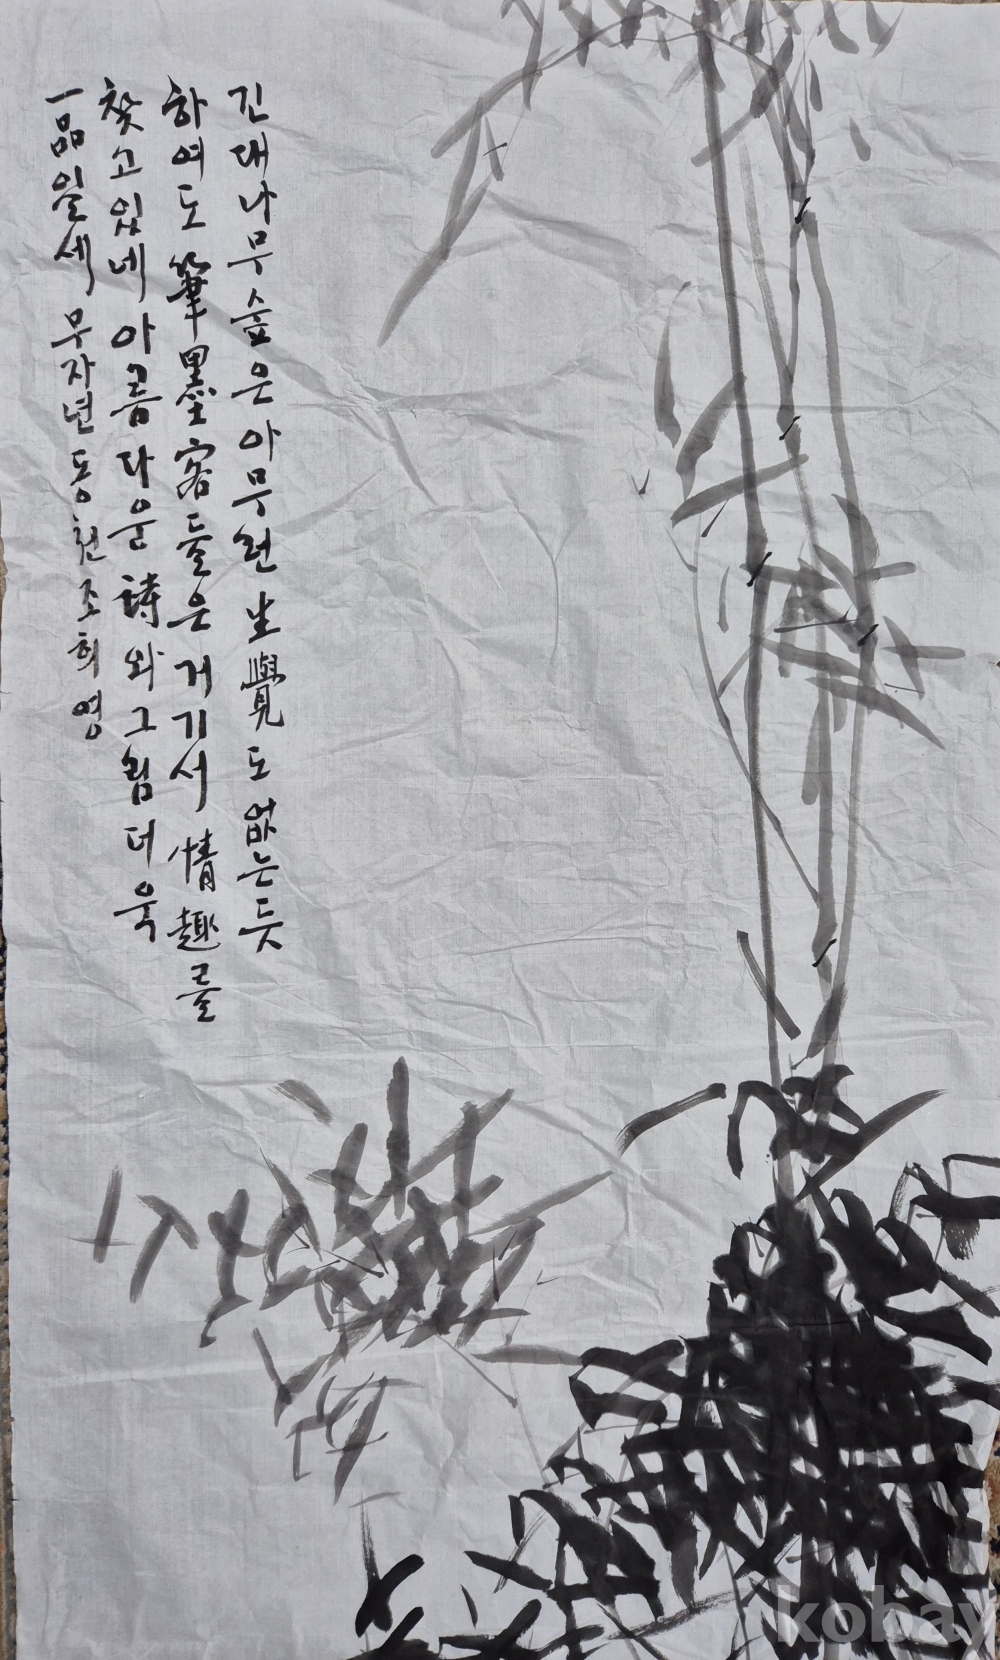 긴대나무숲은아무런生覺도없는듯
하여도筆墨客들은거기서情趣를
찾고있네아름다운詩와그림더욱
一品일세무자년동천조희영
kobay